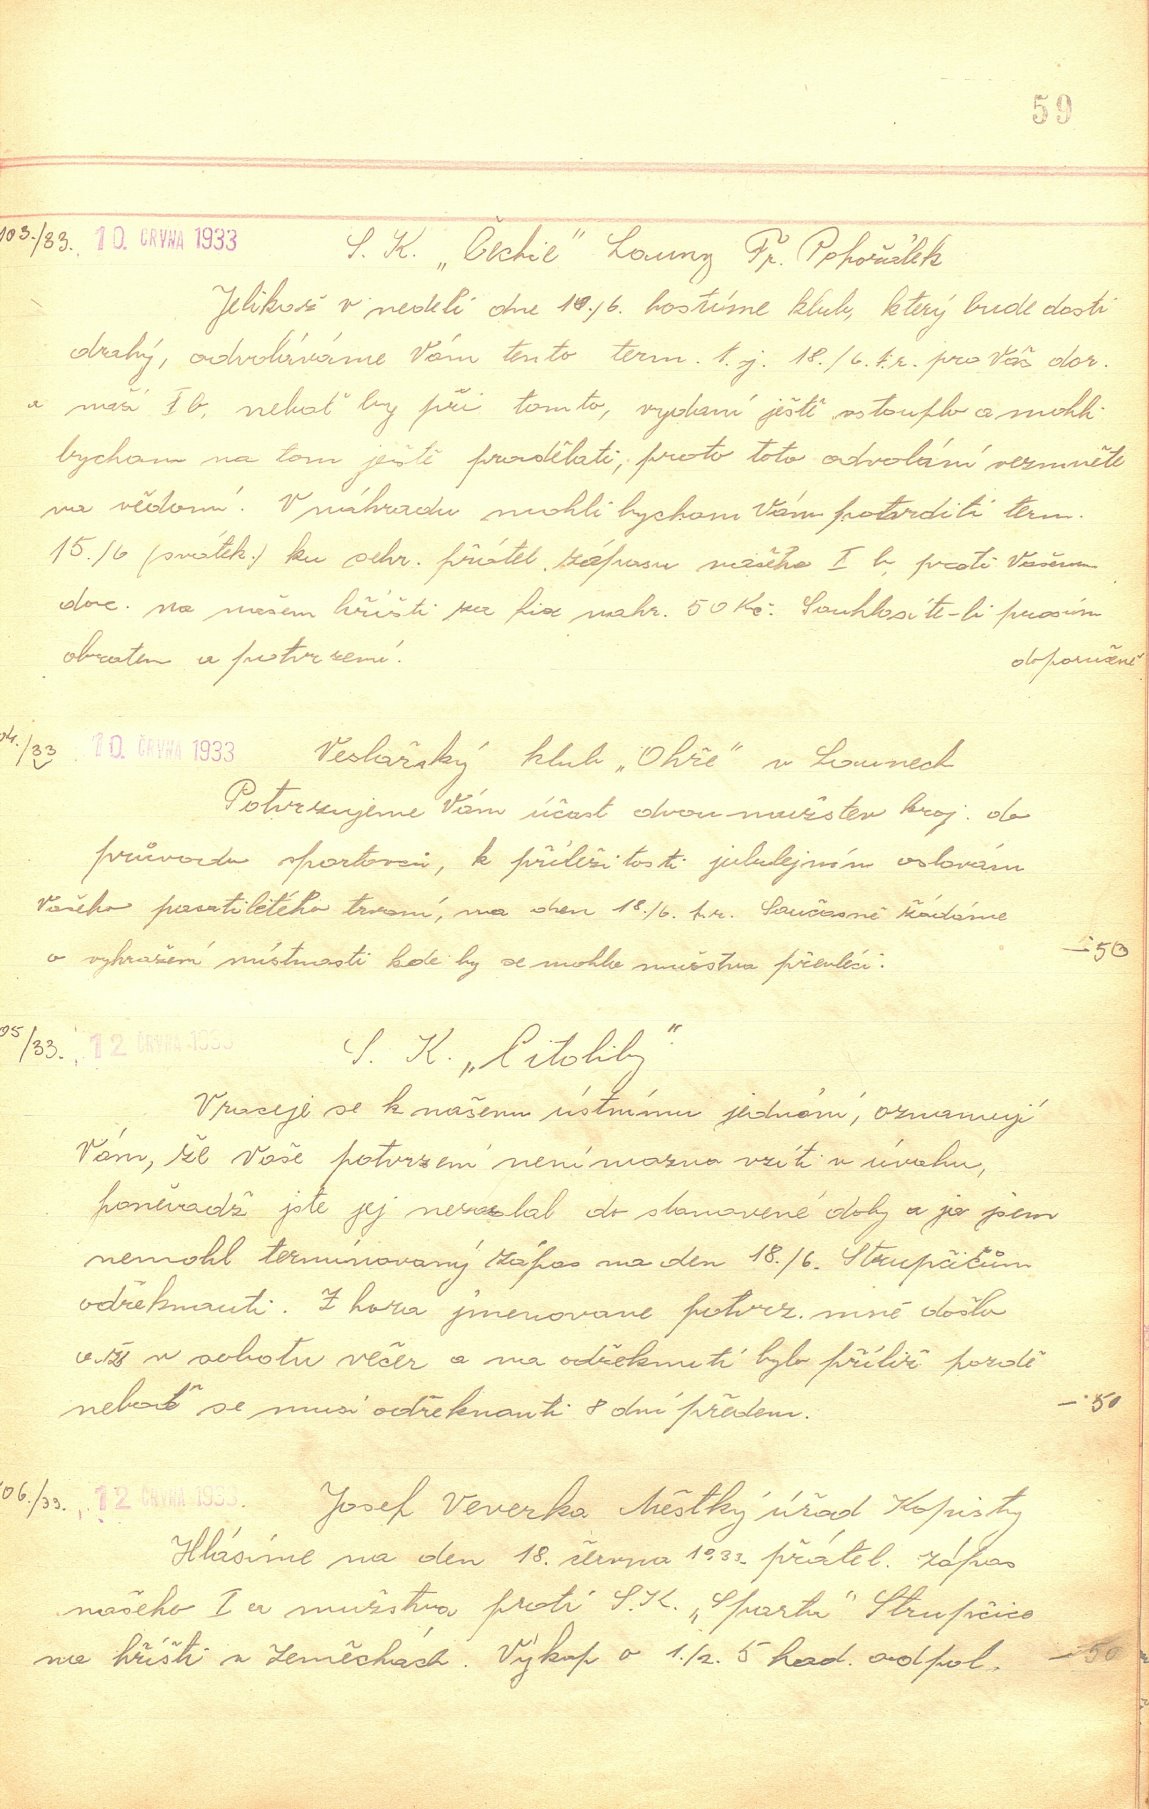 59
103./33. 10. ČRVNA 1933 S. K. „Čechie" Louny Fr. Pohořálek
Jelikož v neděli dne 18./6. hostíme klub, který bude dosti
drahý, odvoláváme Vám tento term. t. j. 18./6. t.r. pro Váš dor.
a naší I b, neboť by při tomto, vydaní ještě vstouplo a mohli
bychom na tom ještě prodělati, proto toto odvolání vezměte
na vědomí. V náhradu mohli bychom Vám potvrditi term.
15./6 (svátek.) ku sehr. přátel. zápasu našeho I b proti Vašemu
dor. na našem hřišti za fix nahr. 50 Kč. Souhlasíte-li prosím
obratem o potvrzení. doporučeně
04./33 10. ČRVNA 1933 Veslařský klub „Ohře" v Lounech
Potvrzujeme Vám účast dvou mužstev kroj. do
průvodu sportovců, k příležitosti jubilejním oslavám
Vašeho padesátiletého trvaní, na den 18./6. t.r. Současně žádáme
o vyhražení místnosti kde by se mohla mužstva převléci. —·50
05/33. 12 ČRVNA 1933 S. K. „Citoliby"
Vraceje se k našemu ústnímu jednání, oznamuji
Vám, že Vaše potvrzení není možno vzíti v úvahu,
poněvadž jste jej nezaslal do stanovené doby a já jsem
nemohl termínovaný zápas na den 18./6. Strupčičům
odřeknouti. Z hora jmenovane potvrz. mně došlo
až v sobotu večer a na odřeknutí bylo příliš pozdě
neboť se musí odřeknouti 8 dní předem. —·50
06./33. 12 ČRVNA 1933. Josef Veverka Městký úřad Kopisty
Hlásíme na den 18. června 1933. přátel. zápas
našeho I a mužstva proti S.K. „Sparta" Strupčice
na hřišti v Zeměchách. Výkop o 1./2. 5 hod. odpol. —·50